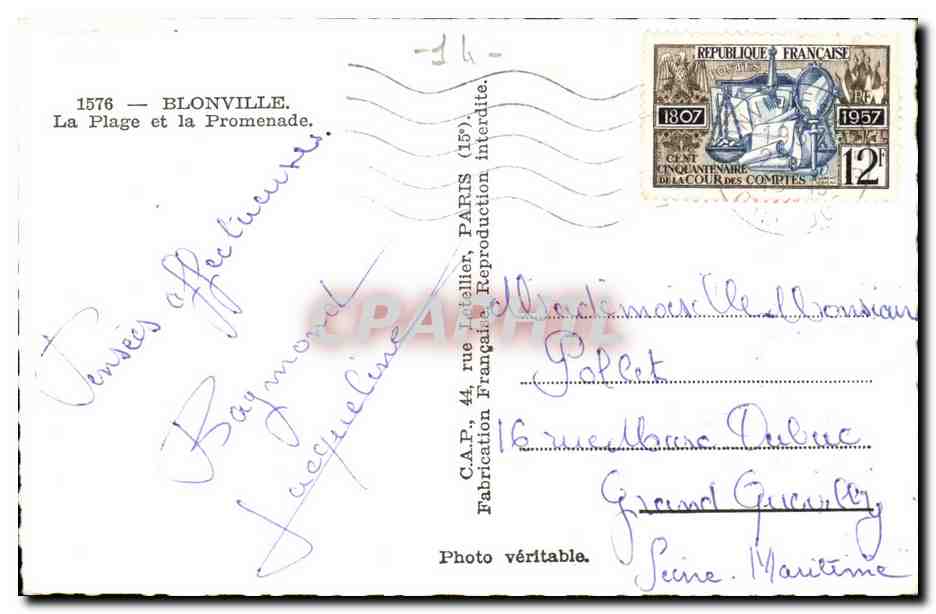 -14-
1576 — BLONVILLE.
La Plage et la Promenade.
Pensées affectueuses.
Raymond
Jacqueline
C.A.P., 44, rue Letellier, PARIS (15e).
Fabrication Française. Reproduction interdite.
Photo véritable.
REPUBLIQUE FRANÇAISE
POSTES
RF
1807
1957
CENT
CINQUANTENAIRE
DE LA COUR DES COMPTES
12F
CPAPHIL
Mademoiselle Monsieur
Pollet
16 rue Marc Dubuc
Grand Quevilly
Seine-Maritime